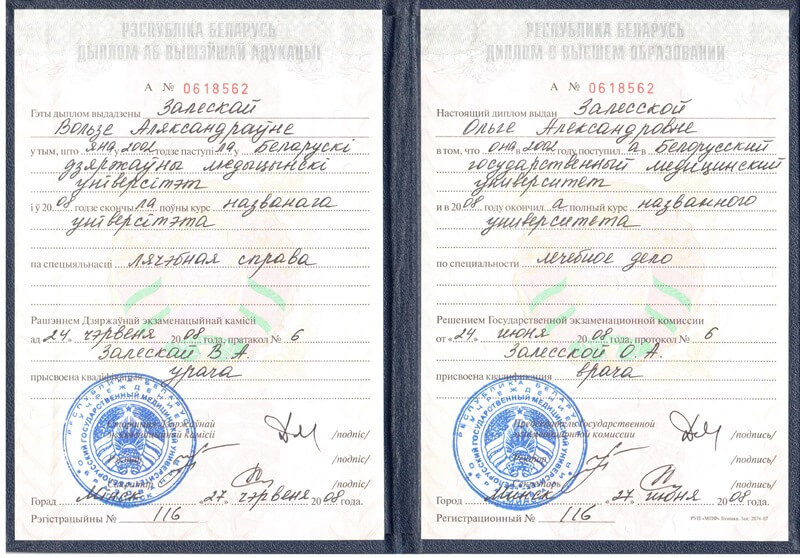 РЭСПУБЛІКА БЕЛАРУСЬ
ДЫПЛОМ АБ ВЫШЭЙШАЙ АДУКАЦЫІ
А № 0618562
Гэты дыплом выдадзены Залескай
Вользе Аляксандраўне
у тым, што яна 2002 годзе паступіла у Беларускі
дзяржаўны медыцынскі
універсітэт
і ў 2008 годзе скончыла поўны курс названага
універсітэта
па спецыяльнасці лячэбная справа
Рашэннем Дзяржаўнай экзаменацыйнай камісіі
ад "24" чэрвеня 2008 года, пратакол № 6
Залескай В. А.
прысвоена кваліфікацыя урача
Старшыня Дзяржаўнай
экзаменацыйнай камісіі /подпіс/
Рэктар /подпіс/
Сакратар /подпіс/
Горад Мінск "27" чэрвеня 2008 года.
Рэгістрацыйны № 116
РЕСПУБЛИКА БЕЛАРУСЬ
ДИПЛОМ О ВЫСШЕМ ОБРАЗОВАНИИ
А № 0618562
Настоящий диплом выдан Залесской
Ольге Александровне
в том, что она 2002 году поступила в Белорусский
государственный медицинский
университет
и в 2008 году окончила полный курс названного
университета
по специальности лечебное дело
Решением Государственной экзаменационной комиссии
от "24" июня 2008 года, протокол № 6
Залесской О. А.
присвоена квалификация врача
Председатель Государственной
экзаменационной комиссии /подпись/
Ректор /подпись/
Секретарь /подпись/
Город Минск "27" июня 2008 года.
Регистрационный № 116